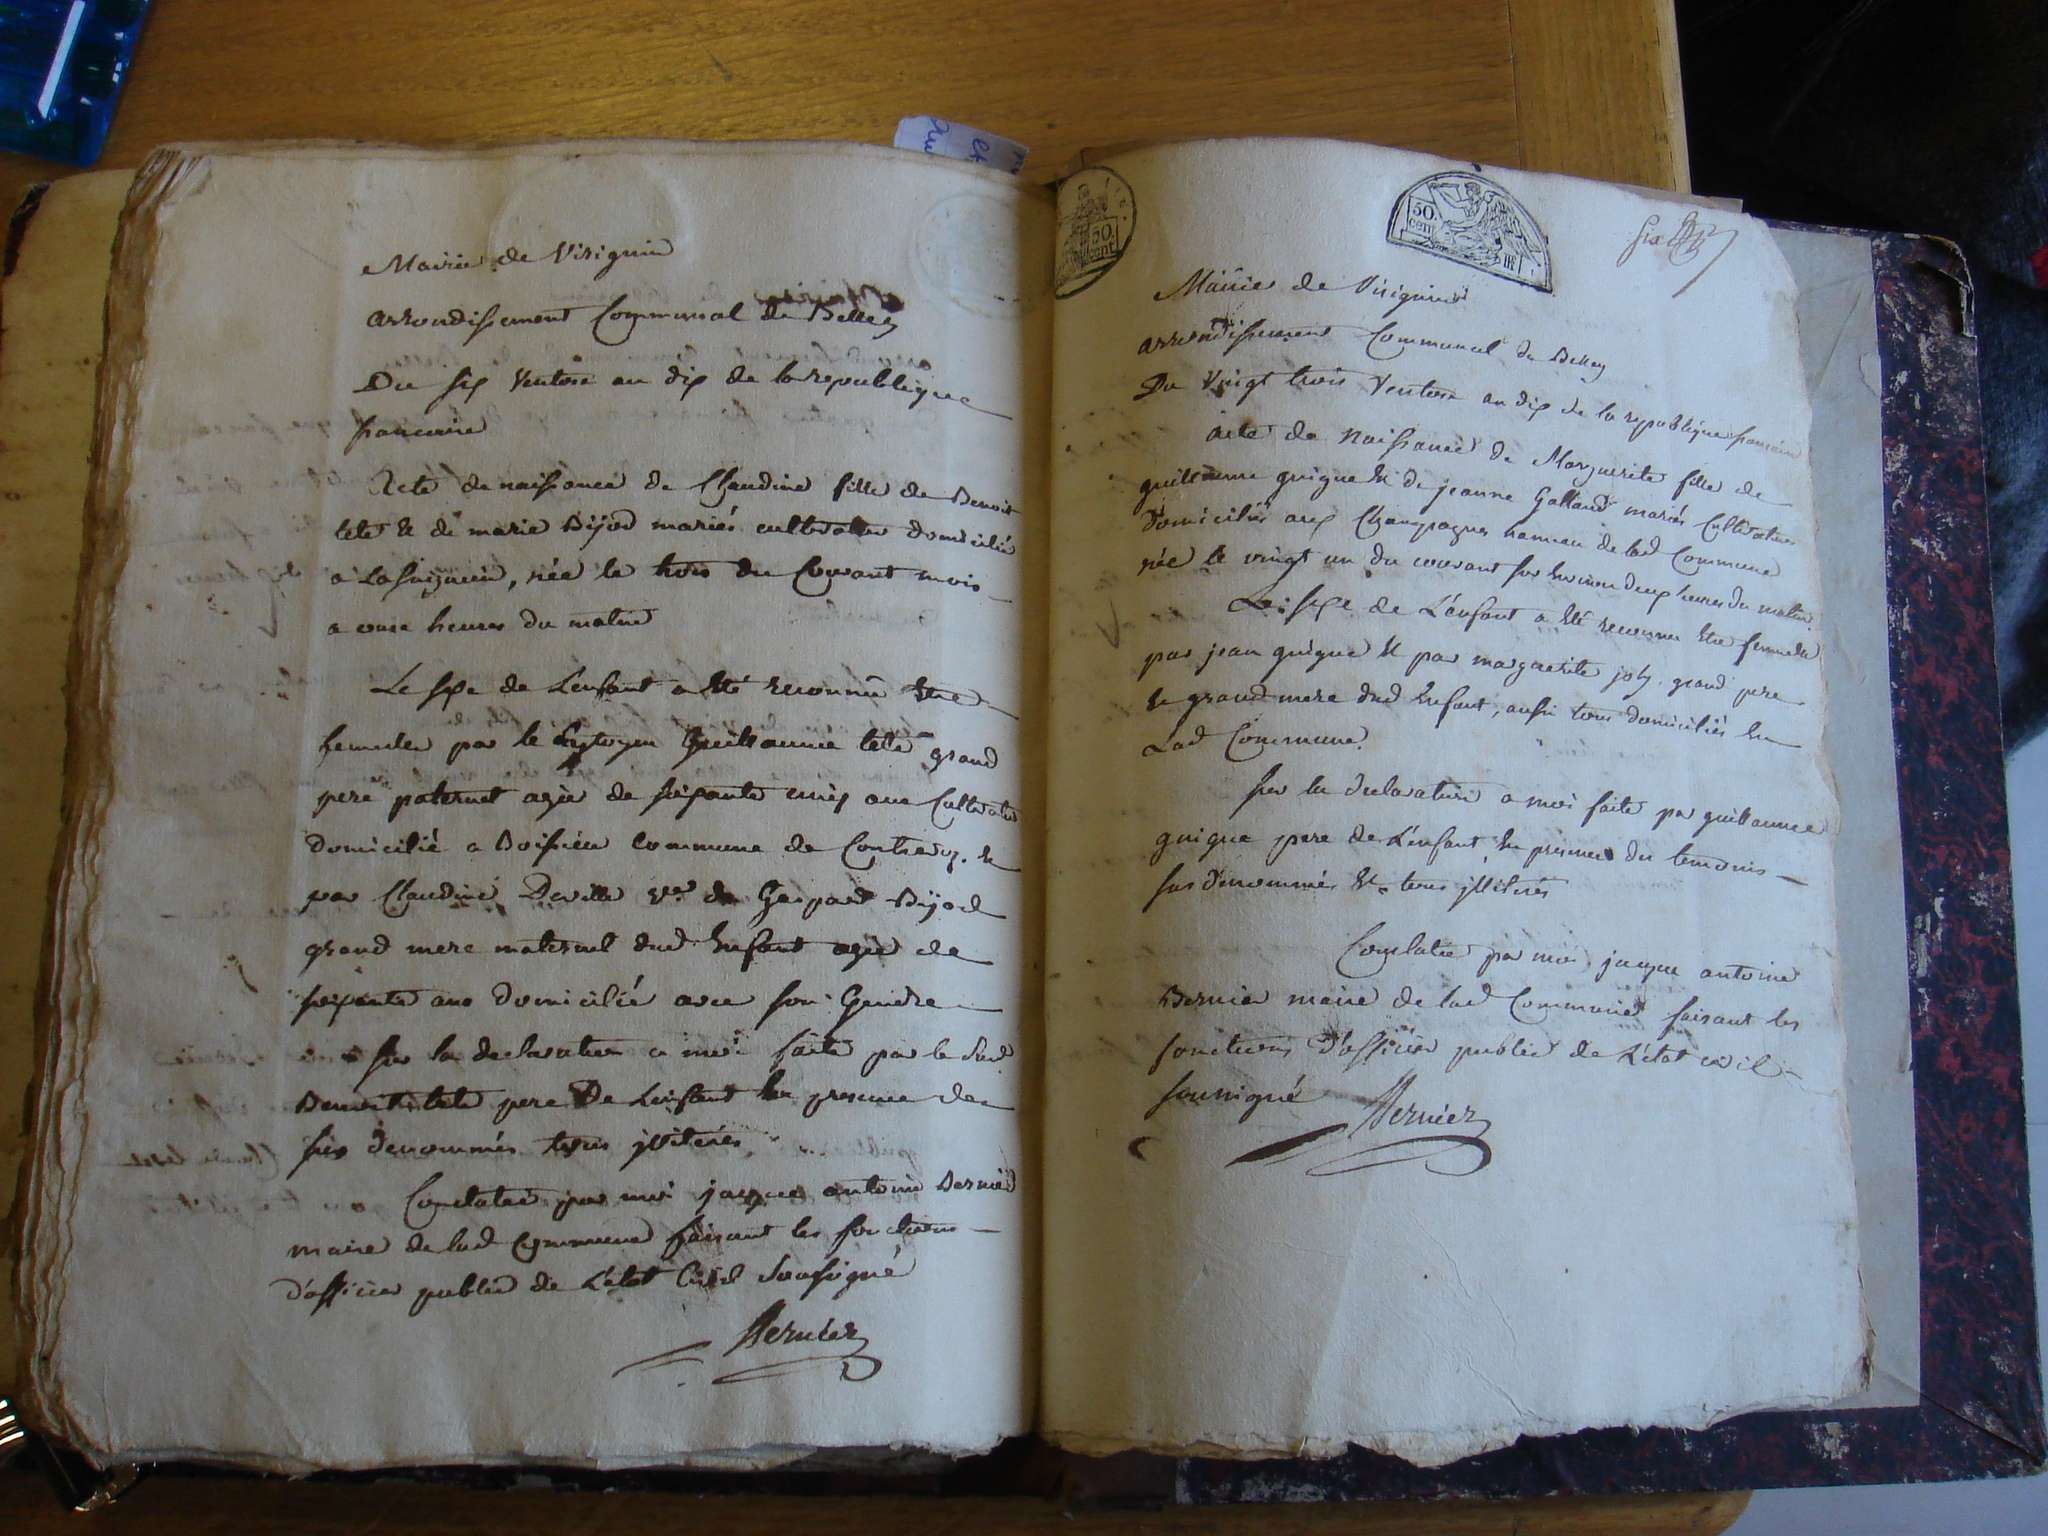 Mairie de Virignin
arrondissement Communal de Belley
Du six Ventose an dix de la republique
francaise
Acte de naissance de Claudine fille de Benoit
tete et de marie Bijod mariés cultivateur domicilié
a Lasuignein, née le trois du Courant mois
a onze heures du matin
Le sexe de Lenfant a été reconnu être
femelle par le Cytoyen Guillaume tete grand
pere paternel agée de soixante cinq ans Cultivateur
domicilié a Boissieu Commune de Contrevoz. et
par Claudine Deville vve de Gaspard Bijod
grand mere maternel dud Enfant agée de
soixante ans domicilié avec son Gendre
sur la declaration a moi faite par le Sud
Benoit tete pere de Lenfant En presence des
sus denommés tous illiterés
Constatée par moi jacque antoine Bernier
maire de lad Commune faisant les fonctions
d'officier public de L'état Civil Soussigné
Bernier
50.
cent
50.
cent
RF
six
Mairie de Virignin
arrondissement Communal de Belley
Du Vingt trois Ventose an dix de la republique francaise
acte de Naissance de Marguerite fille de
guillaume guigue et de jeanne Galland mariés Cultivateurs
domiciliés aux Champagnes hameau de lad Commune
née le vingt un du courant sur les deux heures du matin
Le sexe de L'énfant a été reconnu être femelle
par jean guigue et par marguerite joly grand pere
et grand mere dud Enfant, aussi tous domiciliés En
Lad Commune.
sur la declaration a moi faite par guillaume
guigue pere de L'énfant En presence des temoins
sus denommés et tous illiterés
Constatée par moi jacque antoine
Bernier maire de lad Commune faisant les
fonctions d'officier public de L'état civil
soussigné
Bernier